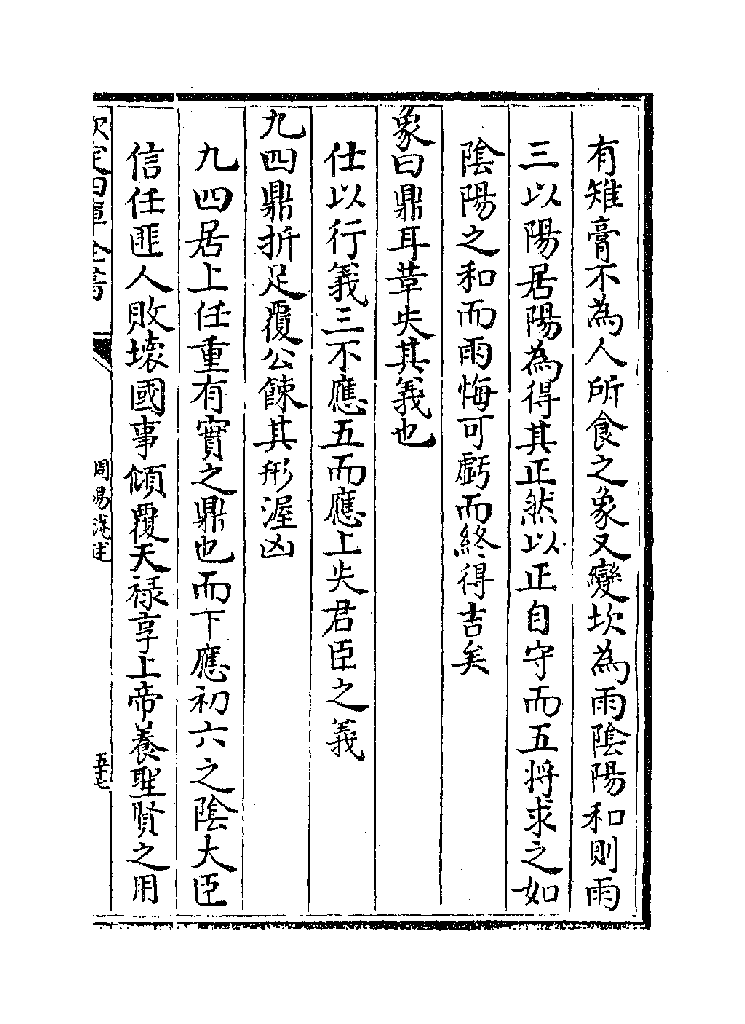 有雉膏不為人所食之象又變坎為雨陰陽和則雨
三以陽居陽為得其正然以正自守而五將求之如
陰陽之和而雨悔可虧而終得吉矣
象曰鼎耳革失其義也
仕以行義三不應五而應上失君臣之義
九四鼎折足覆公餗其形渥凶
九四居上任重有實之鼎也而下應初六之陰大臣
信任匪人敗壞國事傾覆天禄享上帝養聖賢之用
欽定四庫全書
周易淺述